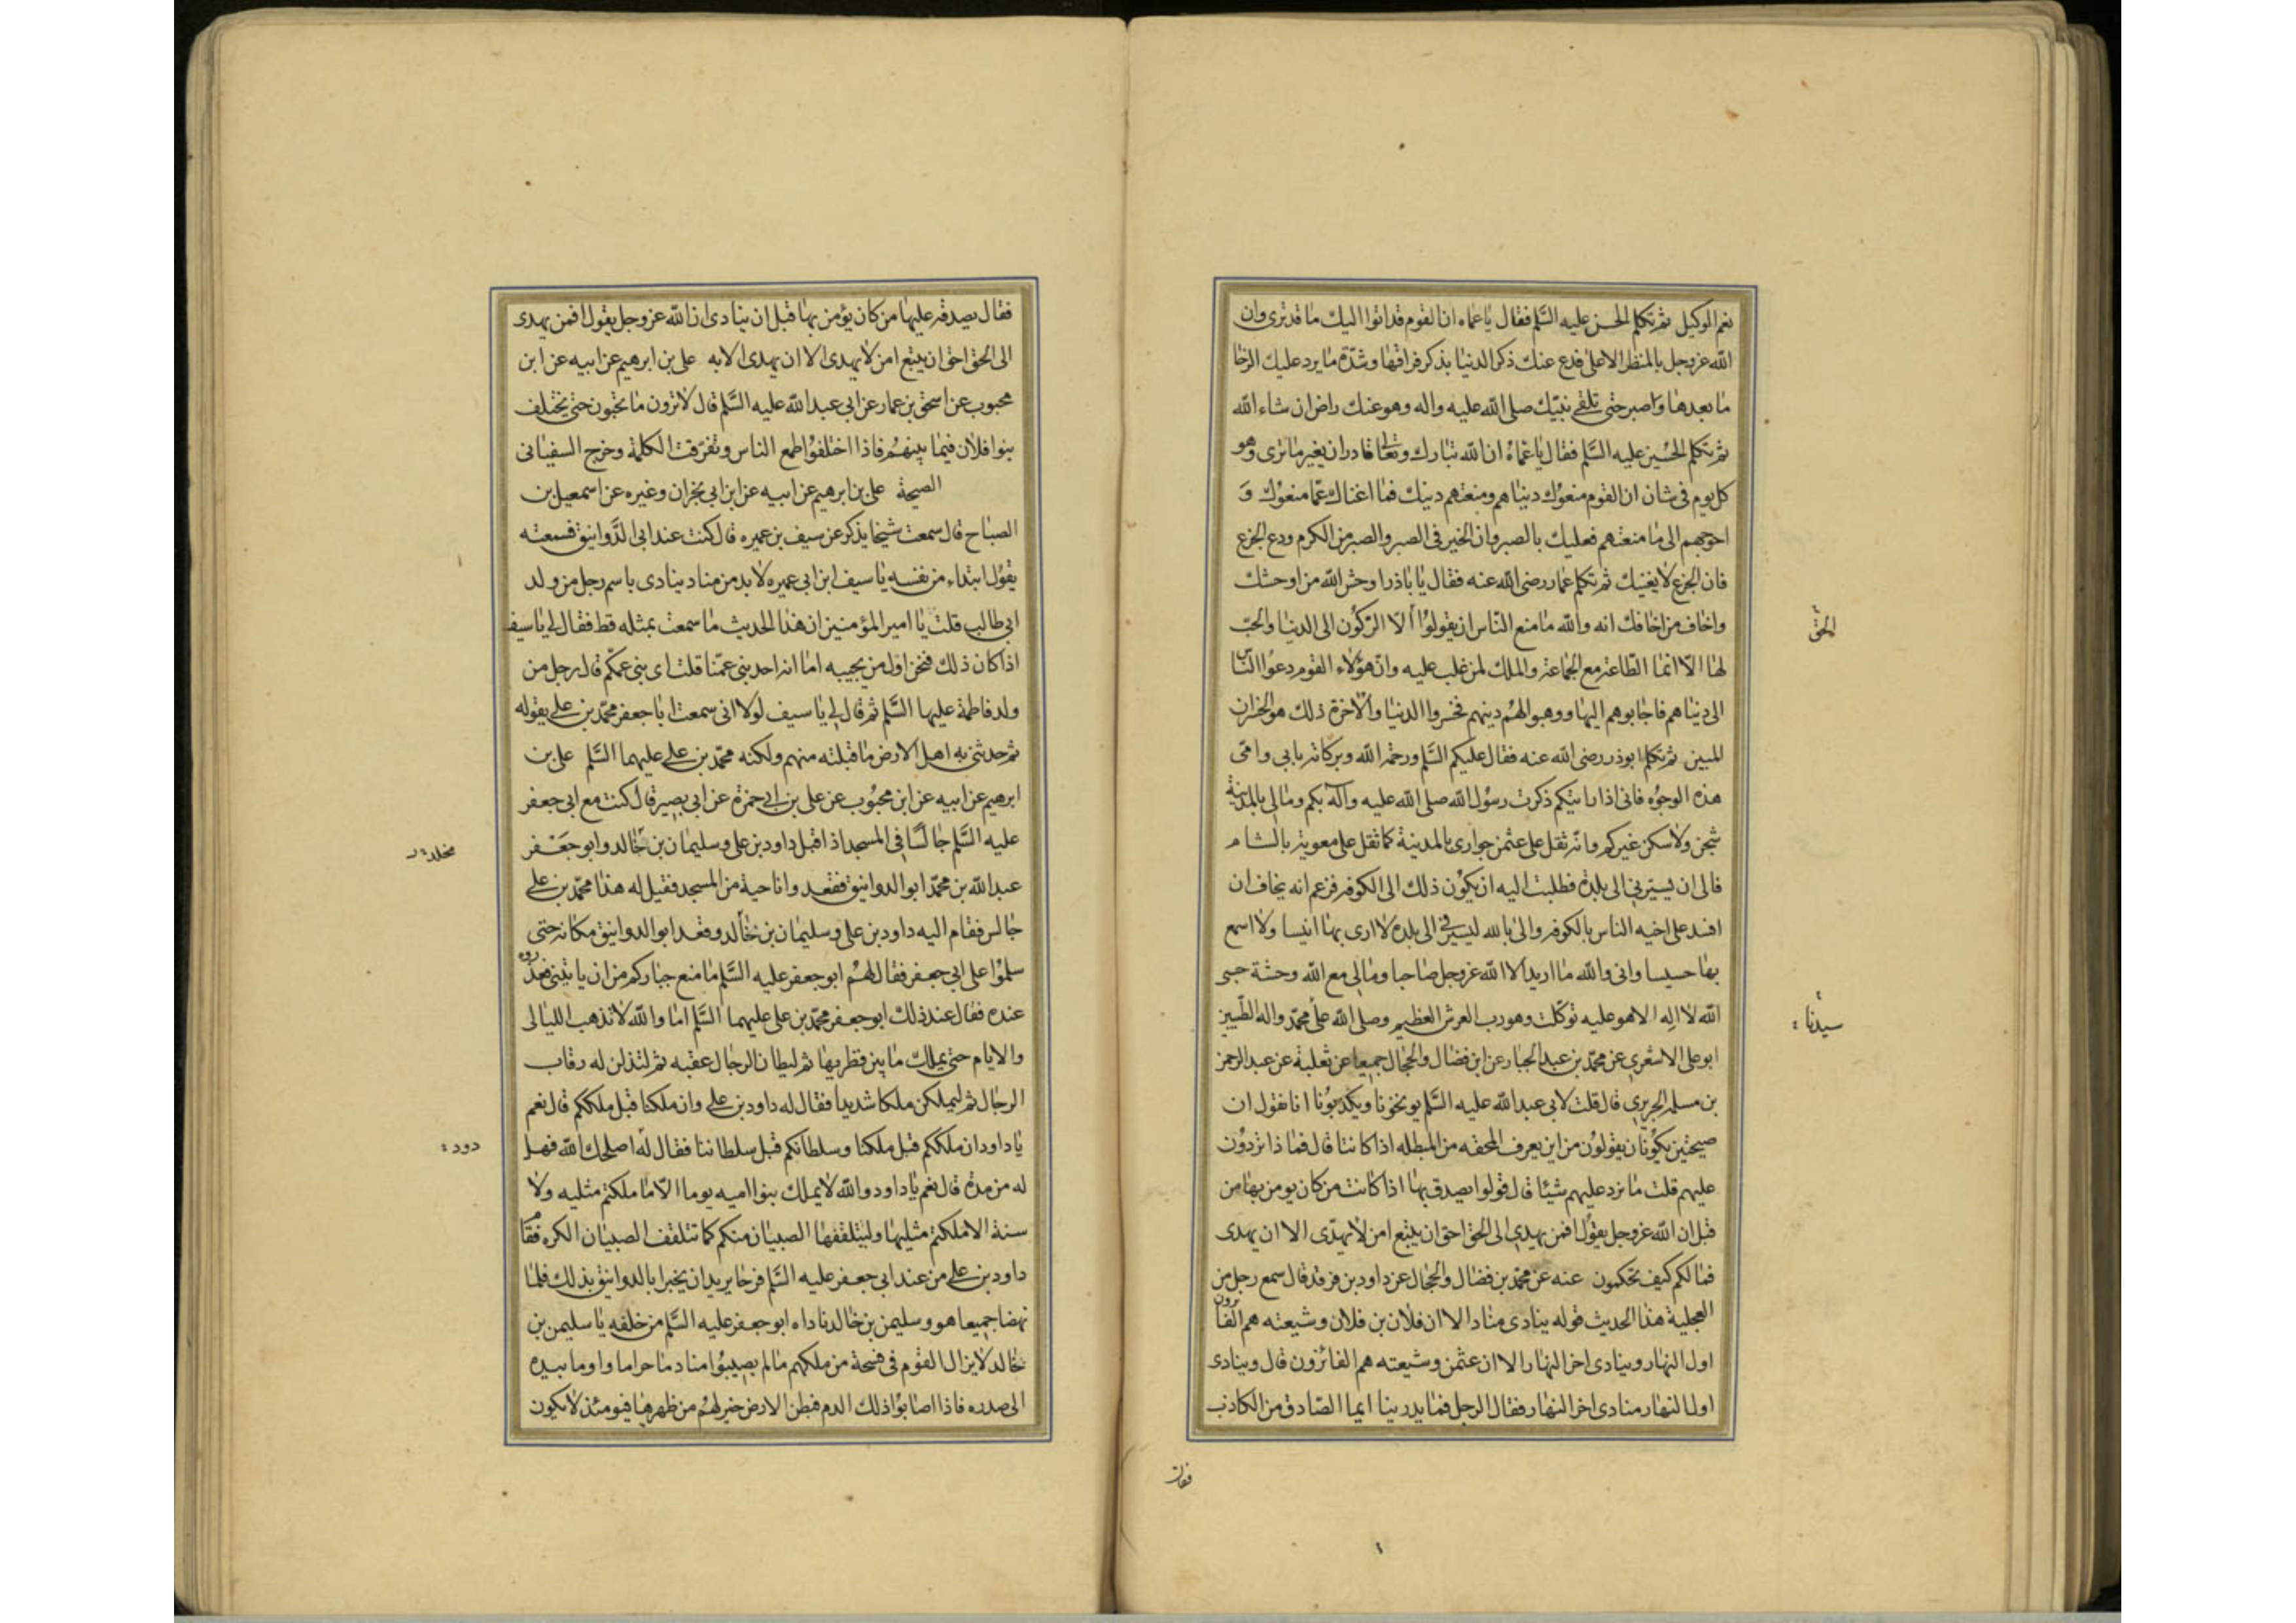 نعم الوكيل ثم تكلم الحسن عليه السّلم فقال يا عماه ان القوم قد اتوا اليك ما قد ترى وان
الله عز وجل بالمنظر الاعلى فدع عنك ذكر الدنيا بذكر فراقها وشدّة ما يرد عليك الرخا
ما بعدها واصبر حتى تلقى نبيّك صلى الله عليه واله وهو عنك راض ان شاء الله
ثم تكلم الحسين عليه السّلم فقال يا عماه ان الله تبارك وتعالى قادر ان يغير ما ترى وهو
كل يوم فى شان ان القوم منعوك دنياهم ومنعتهم دينك فما اغناك عمّا منعوك وَ
احوجهم الى ما منعتهم فعليك بالصبر وان الخير فى الصبر والصبر من الكرم ودع الجزع
فان الجزع لا يغنيك ثم تكلم عمار رضى الله عنه فقال يا باذر اوحش الله من اوحشك
واخاف من اخافك انه والله ما منع النّاس ان يقولوا ألا الركون الى الدنيا والحبّ
لها الّا انّما الطّاعة مع الجماعة والملك لمن غلب عليه وانّ هؤلاء القوم دعوا النّاس
الى دنياهم فاجابوهم اليها ووهبوا لهم دينهم فخسروا الدنيا والاخرة ذلك هو الخسران
المبين ثم تكلم ابوذر رضى الله عنه فقال عليكم السّلم ورحمة الله وبركاته بابي وامّى
هذه الوجوه فانى اذا رايتكم ذكرت رسول الله صلى الله عليه وآله بكم ومالى بالمدينة
شجن ولا سكن غيركم وانّه ثقل على عثمن جوارى بالمدينة كما ثقل على معوية بالشام
فالى ان يسيّرنى الى بلدة فطلبت اليه ان يكون ذلك الى الكوفة فزعم انه يخاف ان
افسد على اخيه الناس بالكوفة والى بالله ليسيرنى الى بلدة لا ارى بها انيسا ولا اسمع
بها حسيسا وانى والله ما اريد الا الله عز وجل صاحبا ومالى مع الله وحشة حسبى
الله لا اله الا هو عليه توكّلت وهو رب العرش العظيم وصلى الله على محمّد واله الطّيبين
ابو على الاشعرى عن محمّد بن عبد الجبار عن ابن فضال والحجال جميعا عن ثعلبة عن عبد الرحمن
بن مسلمة الجريرى قال قلت لابى عبد الله عليه السّلم يوبخونا ويكذبونا انا نقول ان
صيحتين تكونان يقولون من اين يعرف المحقه من المبطله اذا كانتا قال فما ذا تردون
عليهم قلت ما نرد عليهم شيئا قال قولوا يصدق بها اذا كانت من كان يومن بها من
قبل ان الله عز وجل يقول افمن يهدى الى الحق احق ان يتبع امن لا يهدّى الا ان يهدى
فما لكم كيف تحكمون عنه عن محمّد بن فضال والحجال عن داود بن فرقد قال سمع رجل من
العجلية هذا الحديث قوله ينادى مناد الا ان فلان بن فلان وشيعته هم الفائزون
اول النهار وينادى اخر النهار الا ان عثمن وشيعته هم الفائزون قال وينادى
اول النهار منادى اخر النهار فقال الرجل فما يدرينا ايما الصّادق من الكاذب
الحق
سيدنا
فقال
فقال يصدقه عليها من كان يؤمن بها قبل ان ينادى ان الله عز وجل يقول افمن يهدى
الى الحق احق ان يتبع امن لا يهدى الا ان يهدى الا به على بن ابرهيم عن ابيه عن ابن
محبوب عن اسحق بن عمار عن ابى عبد الله عليه السّلم قال لا ترون ما تحبون حتى يختلف
بنوا فلان فيما بينهم فاذا اختلفوا طمع الناس وتفرّقت الكلمة وخرج السفيانى
الصيحة على بن ابرهيم عن ابيه عن ابن ابى نجران وغيره عن اسمعيل بن
الصباح قال سمعت شيخا يذكر عن سيف بن عميره قال كنت عند ابى الدّوانيق فسمعته
يقول ابتداء من نفسه يا سيف ابن ابى عميره لابد من مناد ينادى باسم رجل من ولد
ابى طالب قلت يا امير المؤمنين ان هذا الحديث ما سمعت بمثله قط فقال لى يا سيف
اذا كان ذلك فنحن اول من يجيبه اما انه احد بنى عمّنا قلت اى بنى عمّكم قال رجل من
ولد فاطمة عليها السّلم ثم قال لى يا سيف لولا انى سمعت ابا جعفر محمّد بن على يقوله
ثم حدثنى به اهل الارض ما قبلته منهم ولكنه محمّد بن على عليهما السّلم على بن
ابرهيم عن ابيه عن ابن محبوب عن على بن ابى حمزة عن ابى بصير قال كنت مع ابى جعفر
عليه السّلم جالسا فى المسجد اذ اقبل داود بن على وسليمان بن خالد وابو جعفر
عبد الله بن محمّد ابو الدوانيق فقعدوا ناحية من المسجد فقيل له هذا محمّد بن على
جالس فقام اليه داود بن على وسليمان بن خالد وقعد ابو الدوانيق مكانه حتى
سلموا على ابى جعفر فقال لهم ابو جعفر عليه السّلم ما منع جباركم من ان ياتينى فعذروه
عنده فقال عند ذلك ابو جعفر محمّد بن على عليهما السّلم اما والله لا تذهب الليالى
والايام حتى يملك ما بين قطريها ثم ليطان الرجال عقبه ثم لتذلن له رقاب
الرجال ثم ليملكن ملكا شديدا فقال له داود بن على وان ملكنا قبل ملككم قال نعم
يا داود ان ملككم قبل ملكنا وسلطانكم قبل سلطاننا فقال له اصلحك الله فهل
له من مدة قال نعم يا داود والله لا يملك بنوا اميه يوما الّا ما ملكتم مثليه ولا
سنة الا ملكتم مثليها وليتلقفها الصبيان منكم كما تتلقف الصبيان الكره فقام
داود بن على من عند ابى جعفر عليه السّلم فرحا يريد ان يخبر ابا الدوانيق بذلك فلما
نهضا جميعا هو وسليمن بن خالد ناداه ابو جعفر عليه السّلم من خلفه يا سليمن بن
خالد لا يزال القوم فى فسحة من ملكهم ما لم يصيبوا منا دما حراما واوما بيده
الى صدره فاذا اصابوا ذلك الدم فبطن الارض خير لهم من ظهرها فيومئذ لا يكون
مخلد
دود